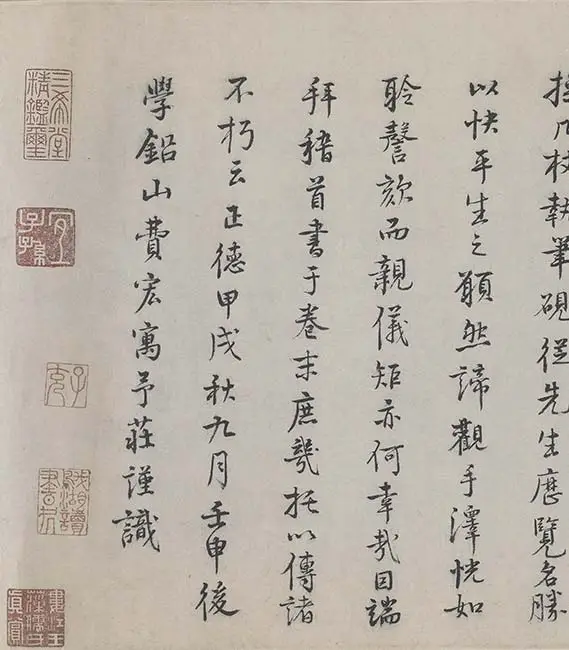 操几杖執筆硯從先生歷覽名勝
以快平生之願然諦觀手澤恍如
聆謦欬而親儀矩亦何幸哉因端
拜稽首書于卷末庶幾托以傳諸
不朽云正德甲戌秋九月壬申後
學鉛山費宏寓予莊謹識
三希堂精鑑璽
宜子孫